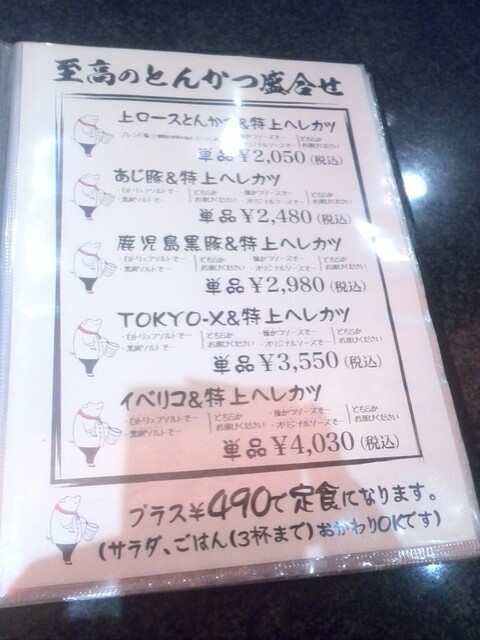 至高のとんかつ盛合せ
上ロースとんかつ&特上ヘレカツ
単品¥2,050(税込)
あじ豚&特上ヘレカツ
・白トリュフソルトで― どちらか ・強かつソースで― どちらか
・黒炭ソルトで― お選びください ・オリジナルソースで― お選びください
単品¥2,480(税込)
鹿児島黒豚&特上ヘレカツ
・白トリュフソルトで― どちらか ・強かつソースで― どちらか
・黒炭ソルトで― お選びください ・オリジナルソースで― お選びください
単品¥2,980(税込)
TOKYO-X&特上ヘレカツ
・白トリュフソルトで― どちらか ・強かつソースで― どちらか
・黒炭ソルトで― お選びください ・オリジナルソースで― お選びください
単品¥3,550(税込)
イベリコ&特上ヘレカツ
・白トリュフソルトで― どちらか ・強かつソースで― どちらか
・黒炭ソルトで― お選びください ・オリジナルソースで― お選びください
単品¥4,030(税込)
プラス¥490で定食になります。
(サラダ、ごはん(3杯まで)おかわりOKです)